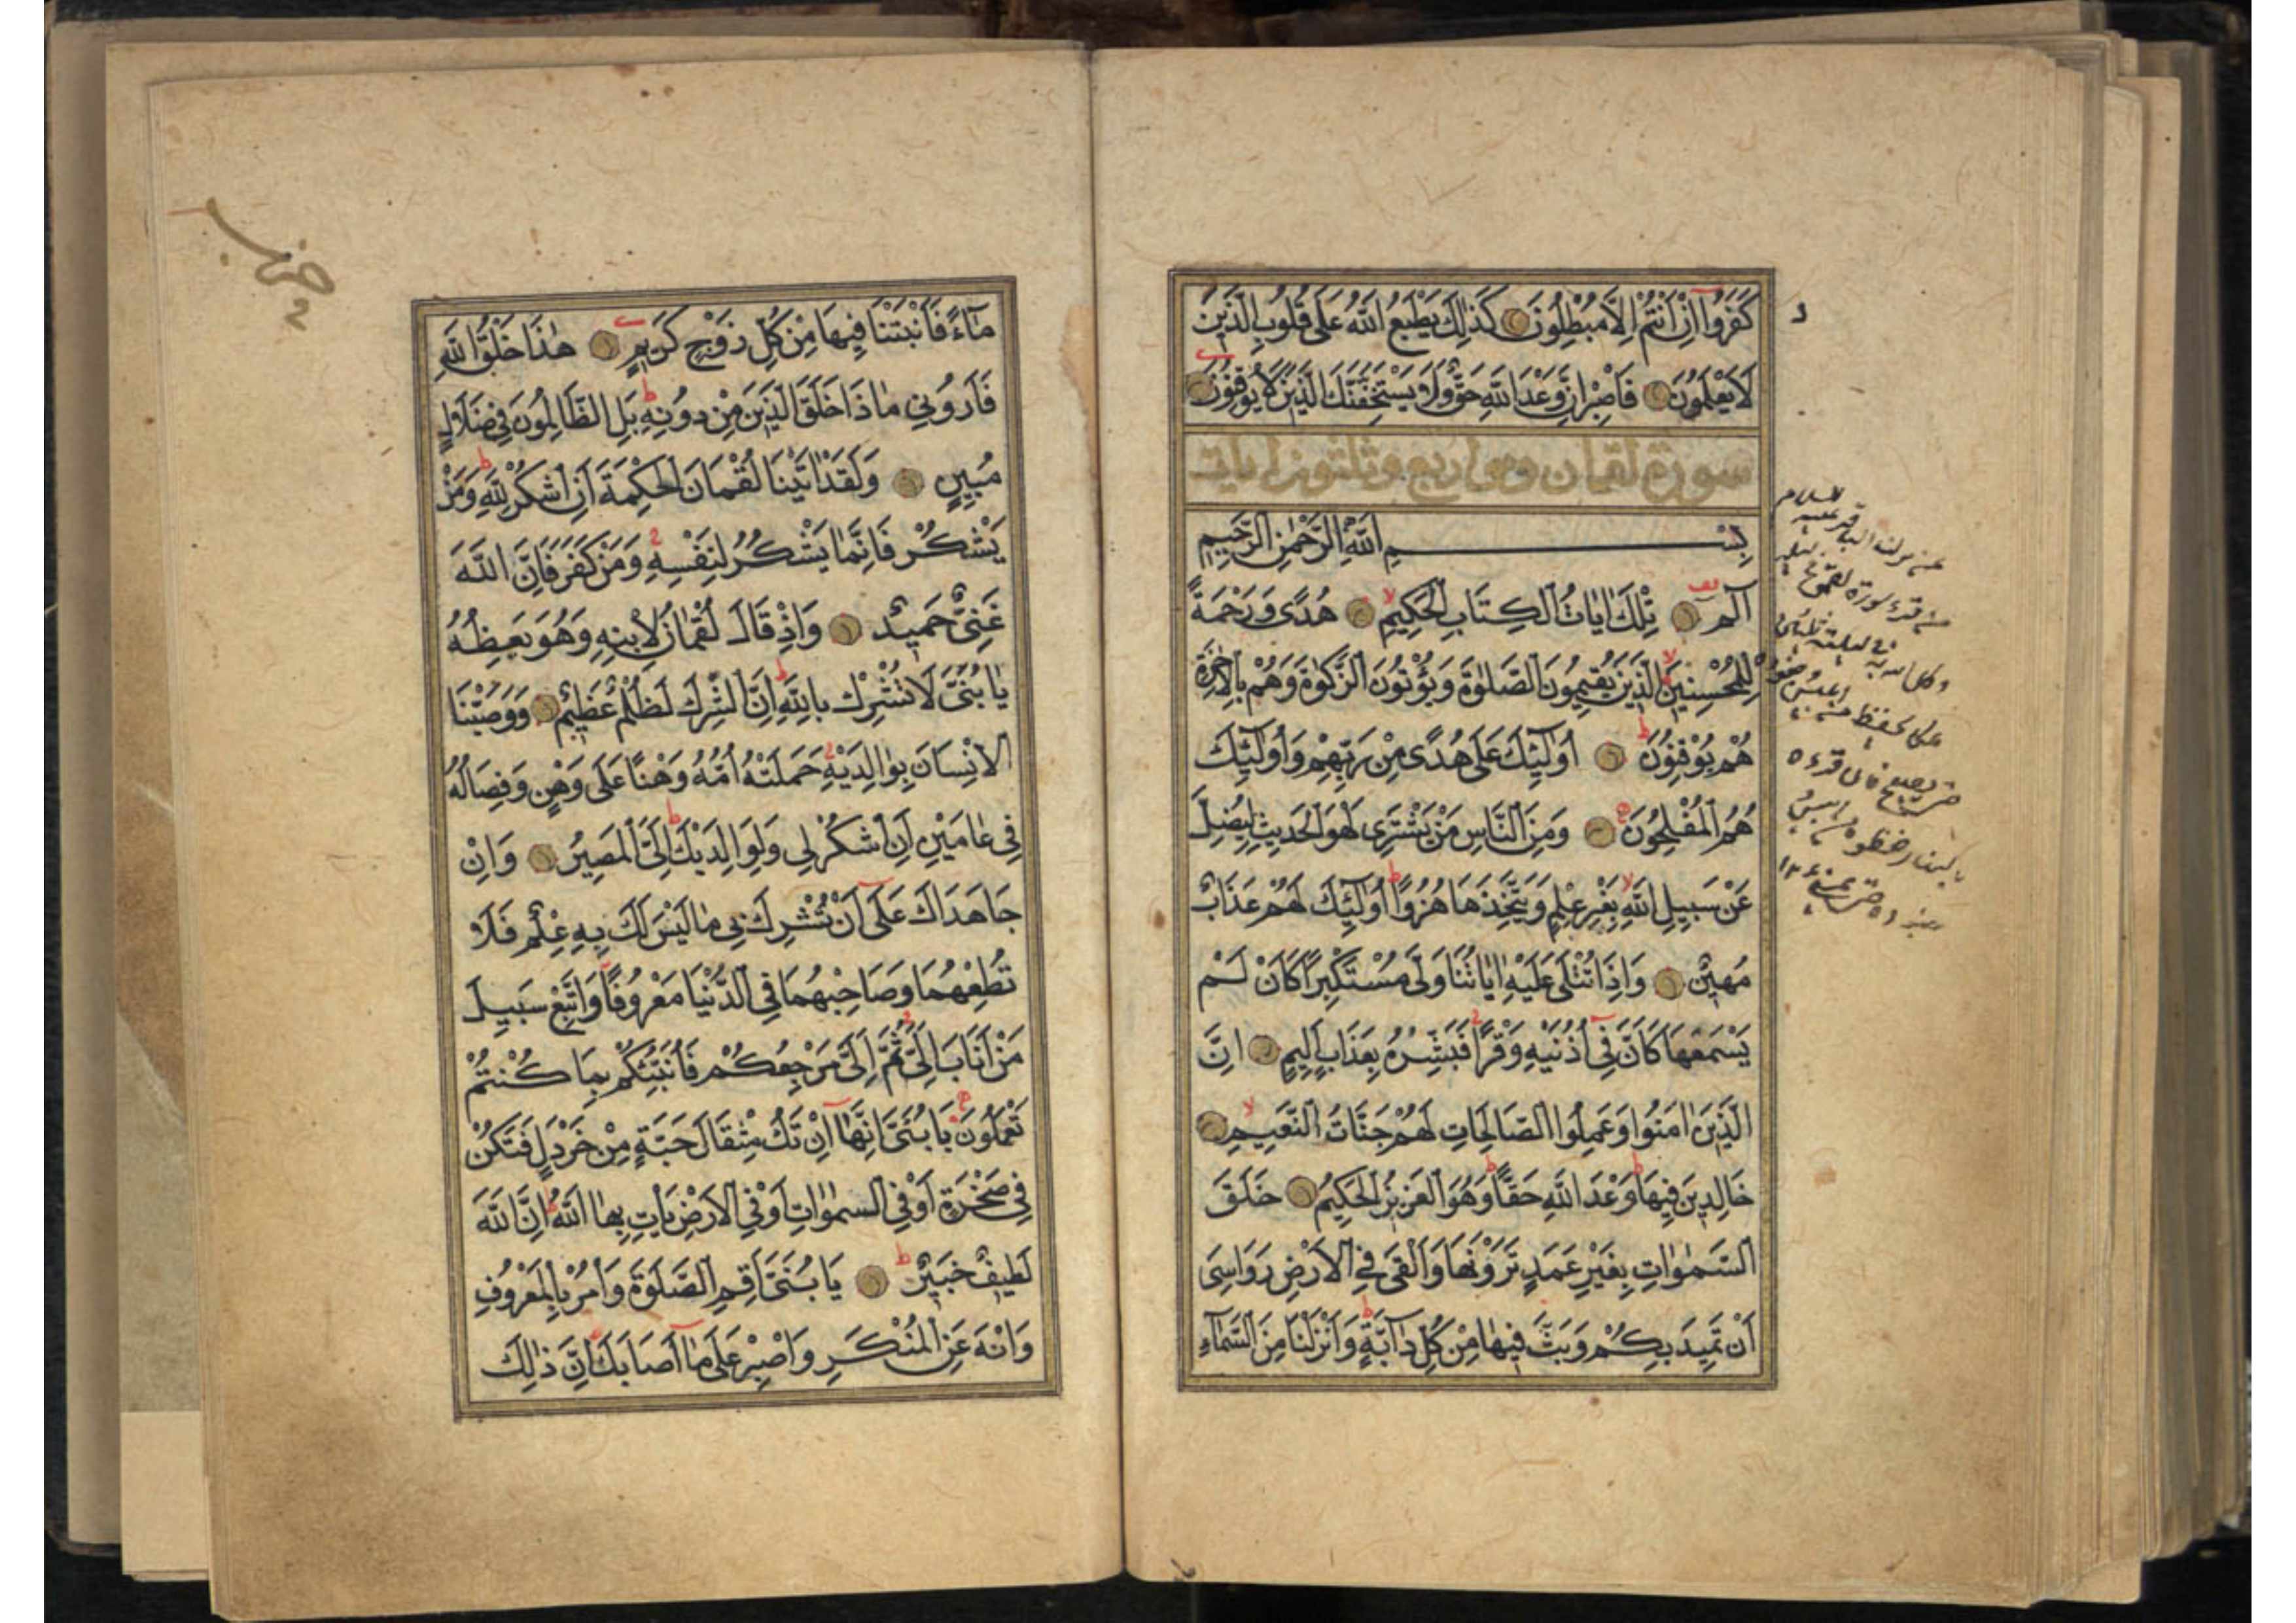 كَفَرُوا اِنْ اَنْتُمْ اِلَّا مُبْطِلُونَ كَذٰلِكَ يَطْبَعُ اللّٰهُ عَلٰى قُلُوبِ الَّذِينَ
لَا يَعْلَمُونَ فَاصْبِرْ اِنَّ وَعْدَ اللّٰهِ حَقٌّ وَلَا يَسْتَخِفَّنَّكَ الَّذِينَ لَا يُوقِنُونَ
سورة لقمان وهى اربع وثلثون ايات
بِسْمِ اللّٰهِ الرَّحْمٰنِ الرَّحِيمِ
الٓمٓ تِلْكَ اٰيَاتُ الْكِتَابِ الْحَكِيمِ هُدًى وَرَحْمَةً
لِلْمُحْسِنِينَ الَّذِينَ يُقِيمُونَ الصَّلٰوةَ وَيُؤْتُونَ الزَّكٰوةَ وَهُمْ بِالْاٰخِرَةِ
هُمْ يُوْقِنُونَ اُولٰٓئِكَ عَلٰى هُدًى مِنْ رَبِّهِمْ وَاُولٰٓئِكَ
هُمُ الْمُفْلِحُونَ وَمِنَ النَّاسِ مَنْ يَشْتَرِى لَهْوَ الْحَدِيثِ لِيُضِلَّ
عَنْ سَبِيلِ اللّٰهِ بِغَيْرِ عِلْمٍ وَيَتَّخِذَهَا هُزُوًا اُولٰٓئِكَ لَهُمْ عَذَابٌ
مُهِينٌ وَاِذَا تُتْلٰى عَلَيْهِ اٰيَاتُنَا وَلّٰى مُسْتَكْبِرًا كَاَنْ لَمْ
يَسْمَعْهَا كَاَنَّ فِى اُذُنَيْهِ وَقْرًا فَبَشِّرْهُ بِعَذَابٍ اَلِيمٍ اِنَّ
الَّذِينَ اٰمَنُوا وَعَمِلُوا الصَّالِحَاتِ لَهُمْ جَنَّاتُ النَّعِيمِ
خَالِدِينَ فِيهَا وَعْدَ اللّٰهِ حَقًّا وَهُوَ الْعَزِيزُ الْحَكِيمُ خَلَقَ
السَّمٰوَاتِ بِغَيْرِ عَمَدٍ تَرَوْنَهَا وَاَلْقٰى فِى الْاَرْضِ رَوَاسِىَ
اَنْ تَمِيدَ بِكُمْ وَبَثَّ فِيهَا مِنْ كُلِّ دَآبَّةٍ وَاَنْزَلْنَا مِنَ السَّمَاءِ
مَاءً فَاَنْبَتْنَا فِيهَا مِنْ كُلِّ زَوْجٍ كَرِيمٍ هٰذَا خَلْقُ اللّٰهِ
فَاَرُونِى مَاذَا خَلَقَ الَّذِينَ مِنْ دُونِهِ بَلِ الظَّالِمُونَ فِى ضَلَالٍ
مُبِينٍ وَلَقَدْ اٰتَيْنَا لُقْمَانَ الْحِكْمَةَ اَنِ اشْكُرْ لِلّٰهِ وَمَنْ
يَشْكُرْ فَاِنَّمَا يَشْكُرُ لِنَفْسِهِ وَمَنْ كَفَرَ فَاِنَّ اللّٰهَ
غَنِىٌّ حَمِيدٌ وَاِذْ قَالَ لُقْمَانُ لِابْنِهِ وَهُوَ يَعِظُهُ
يَا بُنَىَّ لَا تُشْرِكْ بِاللّٰهِ اِنَّ الشِّرْكَ لَظُلْمٌ عَظِيمٌ وَوَصَّيْنَا
الْاِنْسَانَ بِوَالِدَيْهِ حَمَلَتْهُ اُمُّهُ وَهْنًا عَلٰى وَهْنٍ وَفِصَالُهُ
فِى عَامَيْنِ اَنِ اشْكُرْ لِى وَلِوَالِدَيْكَ اِلَىَّ الْمَصِيرُ وَاِنْ
جَاهَدَاكَ عَلٰٓى اَنْ تُشْرِكَ بِى مَا لَيْسَ لَكَ بِهِ عِلْمٌ فَلَا
تُطِعْهُمَا وَصَاحِبْهُمَا فِى الدُّنْيَا مَعْرُوفًا وَاتَّبِعْ سَبِيلَ
مَنْ اَنَابَ اِلَىَّ ثُمَّ اِلَىَّ مَرْجِعُكُمْ فَاُنَبِّئُكُمْ بِمَا كُنْتُمْ
تَعْمَلُونَ يَا بُنَىَّ اِنَّهَا اِنْ تَكُ مِثْقَالَ حَبَّةٍ مِنْ خَرْدَلٍ فَتَكُنْ
فِى صَخْرَةٍ اَوْ فِى السَّمٰوَاتِ اَوْ فِى الْاَرْضِ يَاْتِ بِهَا اللّٰهُ اِنَّ اللّٰهَ
لَطِيفٌ خَبِيرٌ يَا بُنَىَّ اَقِمِ الصَّلٰوةَ وَاْمُرْ بِالْمَعْرُوفِ
وَانْهَ عَنِ الْمُنْكَرِ وَاصْبِرْ عَلٰى مَآ اَصَابَكَ اِنَّ ذٰلِكَ